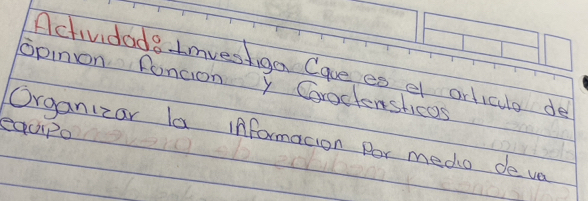 Actividad: Investiga Cque es el articulo de
opinion Foncion y Caracteristicos
Organizar la informacion por medio de va
equipo